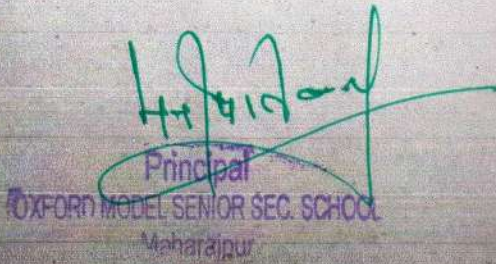 Principal
OXFORD MODEL SENIOR SEC. SCHOOL
Maharajpur